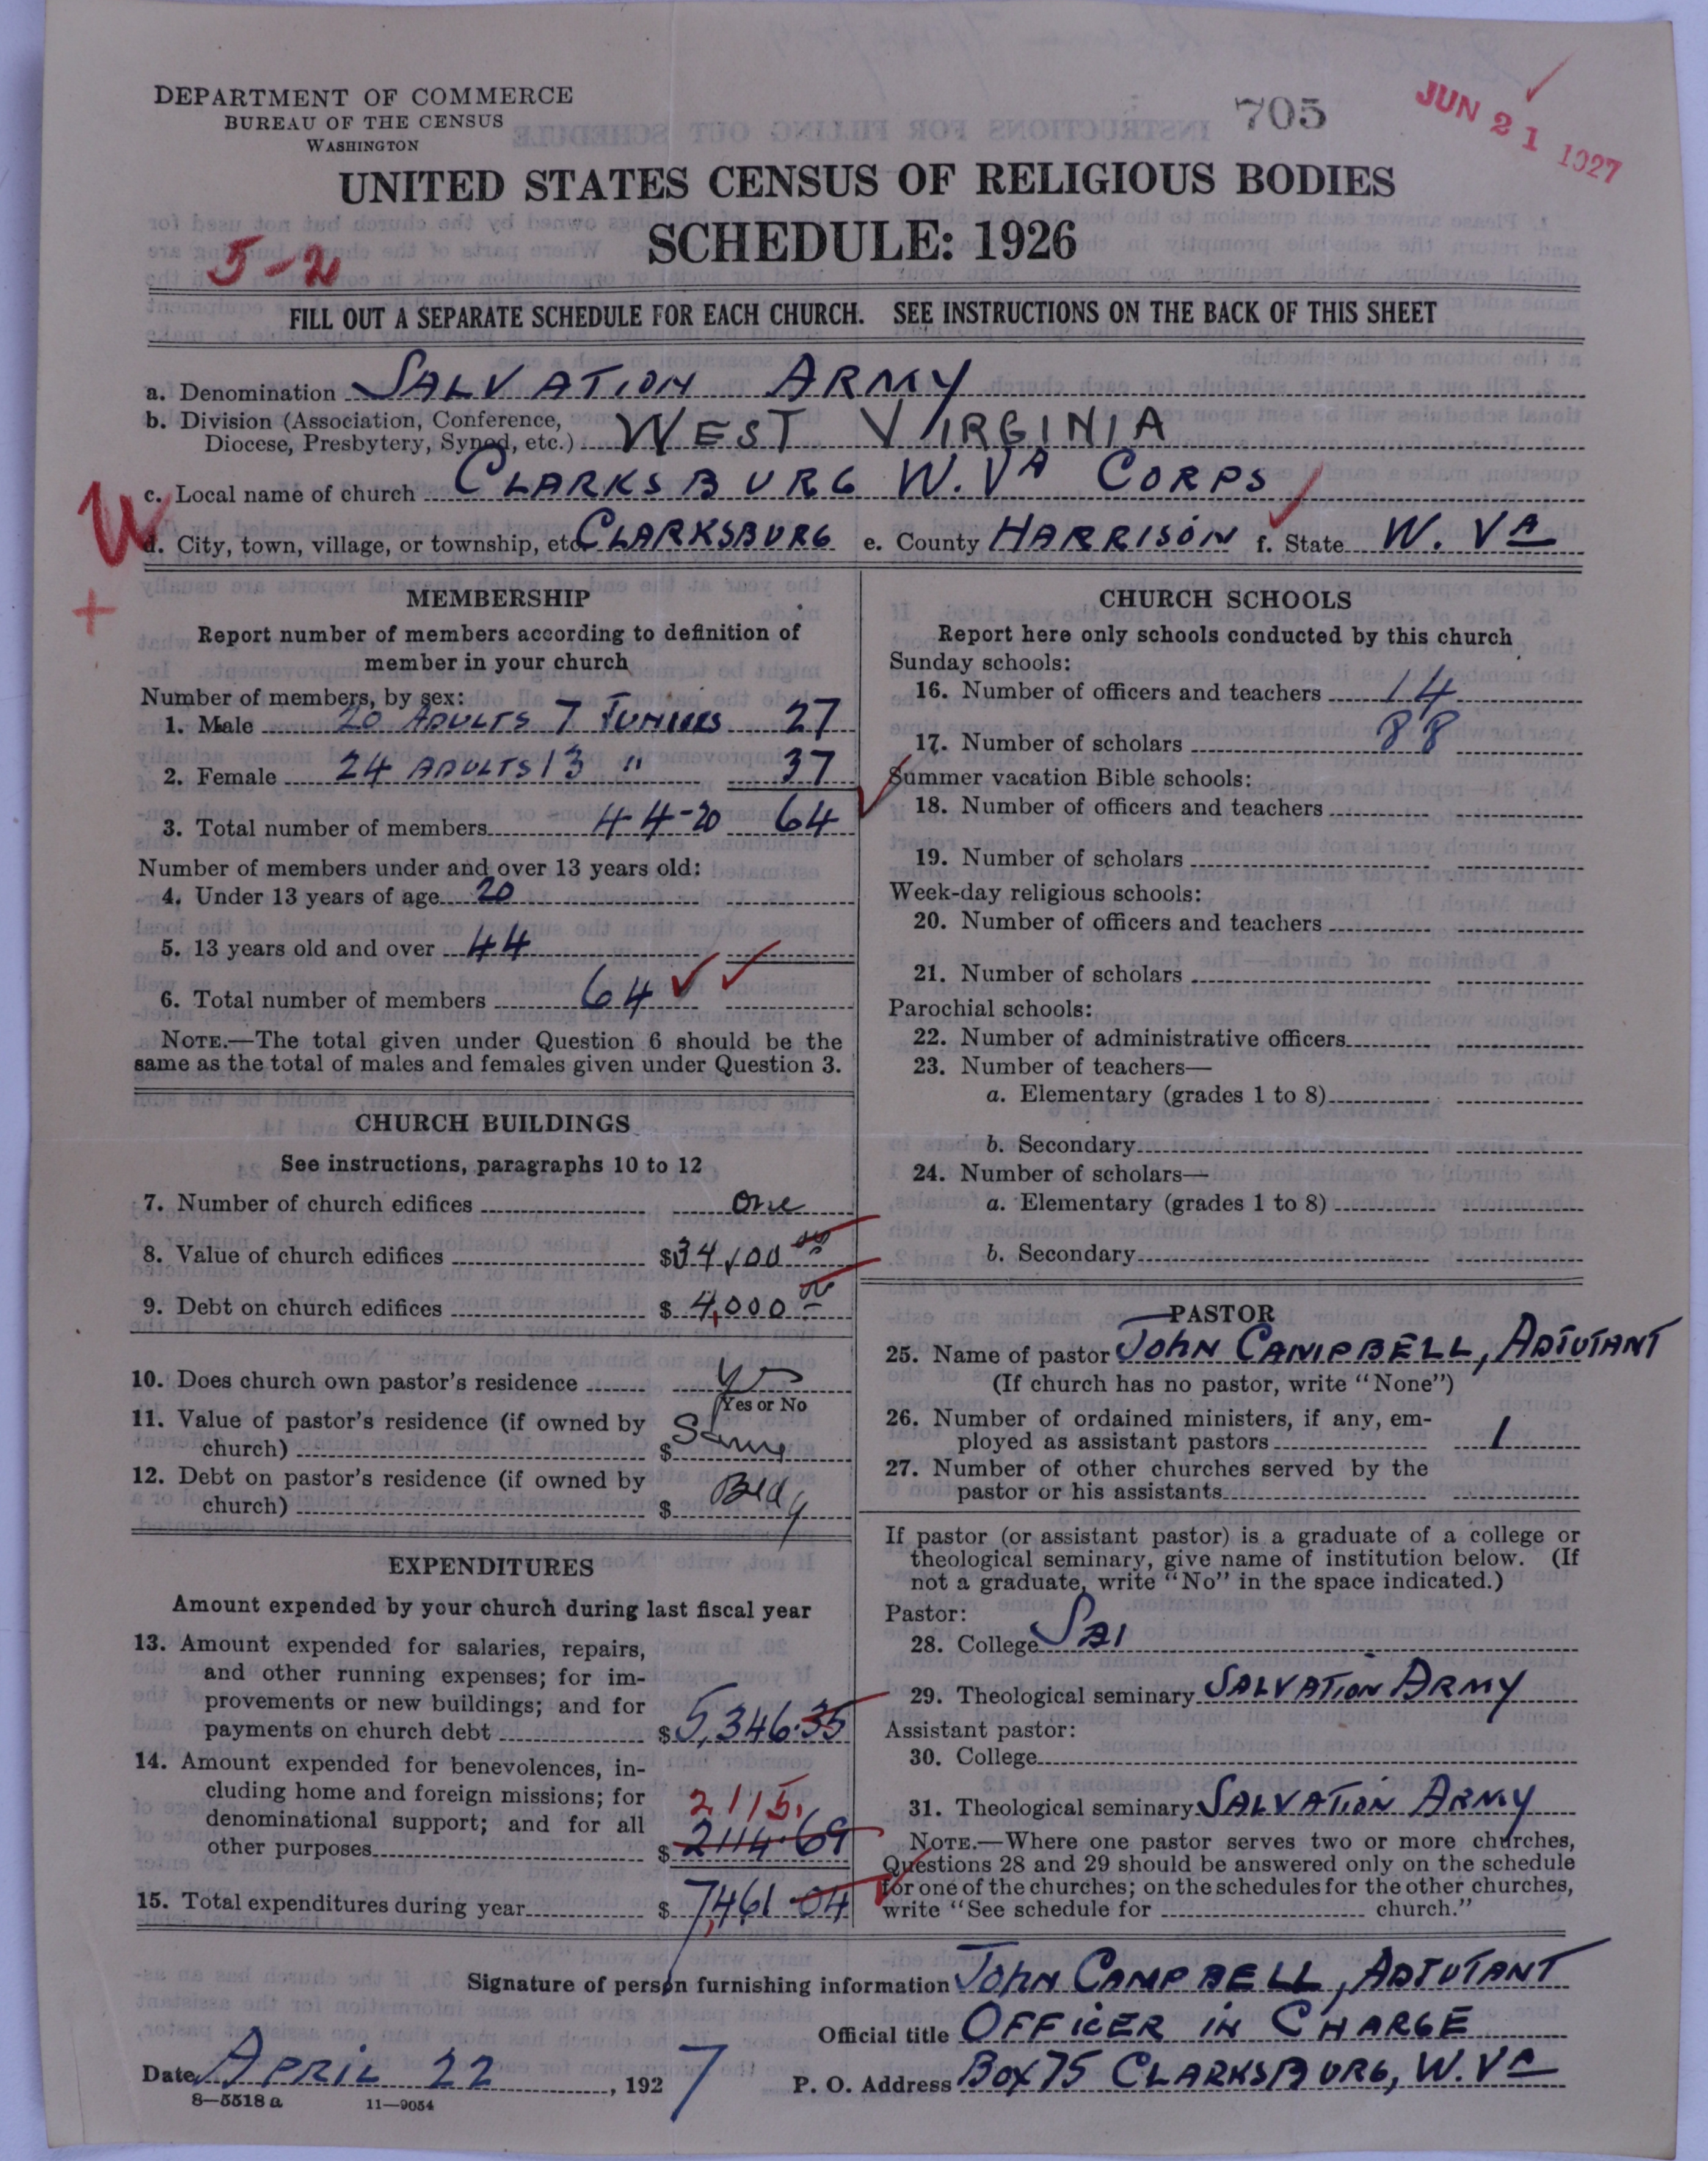 DEPARTMENT OF COMMERCE
BUREAU OF THE CENSUS
WASHINGTON
705
JUN 21 1927
UNITED STATES CENSUS OF RELIGIOUS BODIES
SCHEDULE: 1926
5-2
FILL OUT A SEPARATE SCHEDULE FOR EACH CHURCH. SEE INSTRUCTIONS ON THE BACK OF THIS SHEET
a. Denomination SALVATION ARMY
b. Division (Association, Conference,
Diocese, Presbytery, Synod, etc.) WEST VIRGINIA
c. Local name of church CLARKSBURG W. VA CORPS
d. City, town, village, or township, etc. CLARKSBURG e. County HARRISON f. State W. VA
MEMBERSHIP
Report number of members according to definition of
member in your church
Number of members, by sex:
1. Male 20 ADULTS 7 JUNIORS 27
2. Female 24 ADULTS 13 " 37
3. Total number of members 44-20 64
Number of members under and over 13 years old:
4. Under 13 years of age 20
5. 13 years old and over 44
6. Total number of members 64
NOTE.—The total given under Question 6 should be the
same as the total of males and females given under Question 3.
CHURCH BUILDINGS
See instructions, paragraphs 10 to 12
7. Number of church edifices one
8. Value of church edifices $34,100 00
9. Debt on church edifices $ 4,000 00
10. Does church own pastor's residence yes
Yes or No
11. Value of pastor's residence (if owned by
church) $ Same
12. Debt on pastor's residence (if owned by
church) $ Bldg
EXPENDITURES
Amount expended by your church during last fiscal year
13. Amount expended for salaries, repairs,
and other running expenses; for im-
provements or new buildings; and for
payments on church debt $ 5,346.35
14. Amount expended for benevolences, in-
cluding home and foreign missions; for
denominational support; and for all
2115.
other purposes $ 2114.69
15. Total expenditures during year $ 7,461 04
CHURCH SCHOOLS
Report here only schools conducted by this church
Sunday schools:
16. Number of officers and teachers 14
17. Number of scholars 88
Summer vacation Bible schools:
18. Number of officers and teachers
19. Number of scholars
Week-day religious schools:
20. Number of officers and teachers
21. Number of scholars
Parochial schools:
22. Number of administrative officers
23. Number of teachers—
a. Elementary (grades 1 to 8)
b. Secondary
24. Number of scholars—
a. Elementary (grades 1 to 8)
b. Secondary
PASTOR
25. Name of pastor JOHN CAMPBELL, ADJUTANT
(If church has no pastor, write "None")
26. Number of ordained ministers, if any, em-
ployed as assistant pastors 1
27. Number of other churches served by the
pastor or his assistants
If pastor (or assistant pastor) is a graduate of a college or
theological seminary, give name of institution below. (If
not a graduate, write "No" in the space indicated.)
Pastor:
28. College SAl
29. Theological seminary SALVATION ARMY
Assistant pastor:
30. College
31. Theological seminary SALVATION ARMY
NOTE.—Where one pastor serves two or more churches,
Questions 28 and 29 should be answered only on the schedule
for one of the churches; on the schedules for the other churches,
write "See schedule for church."
Signature of person furnishing information JOHN CAMPBELL, ADJUTANT
Official title OFFICER IN CHARGE
Date APRIL 22, 1927 P. O. Address BOX 75 CLARKSBURG, W. VA
8—5518 a 11—9054